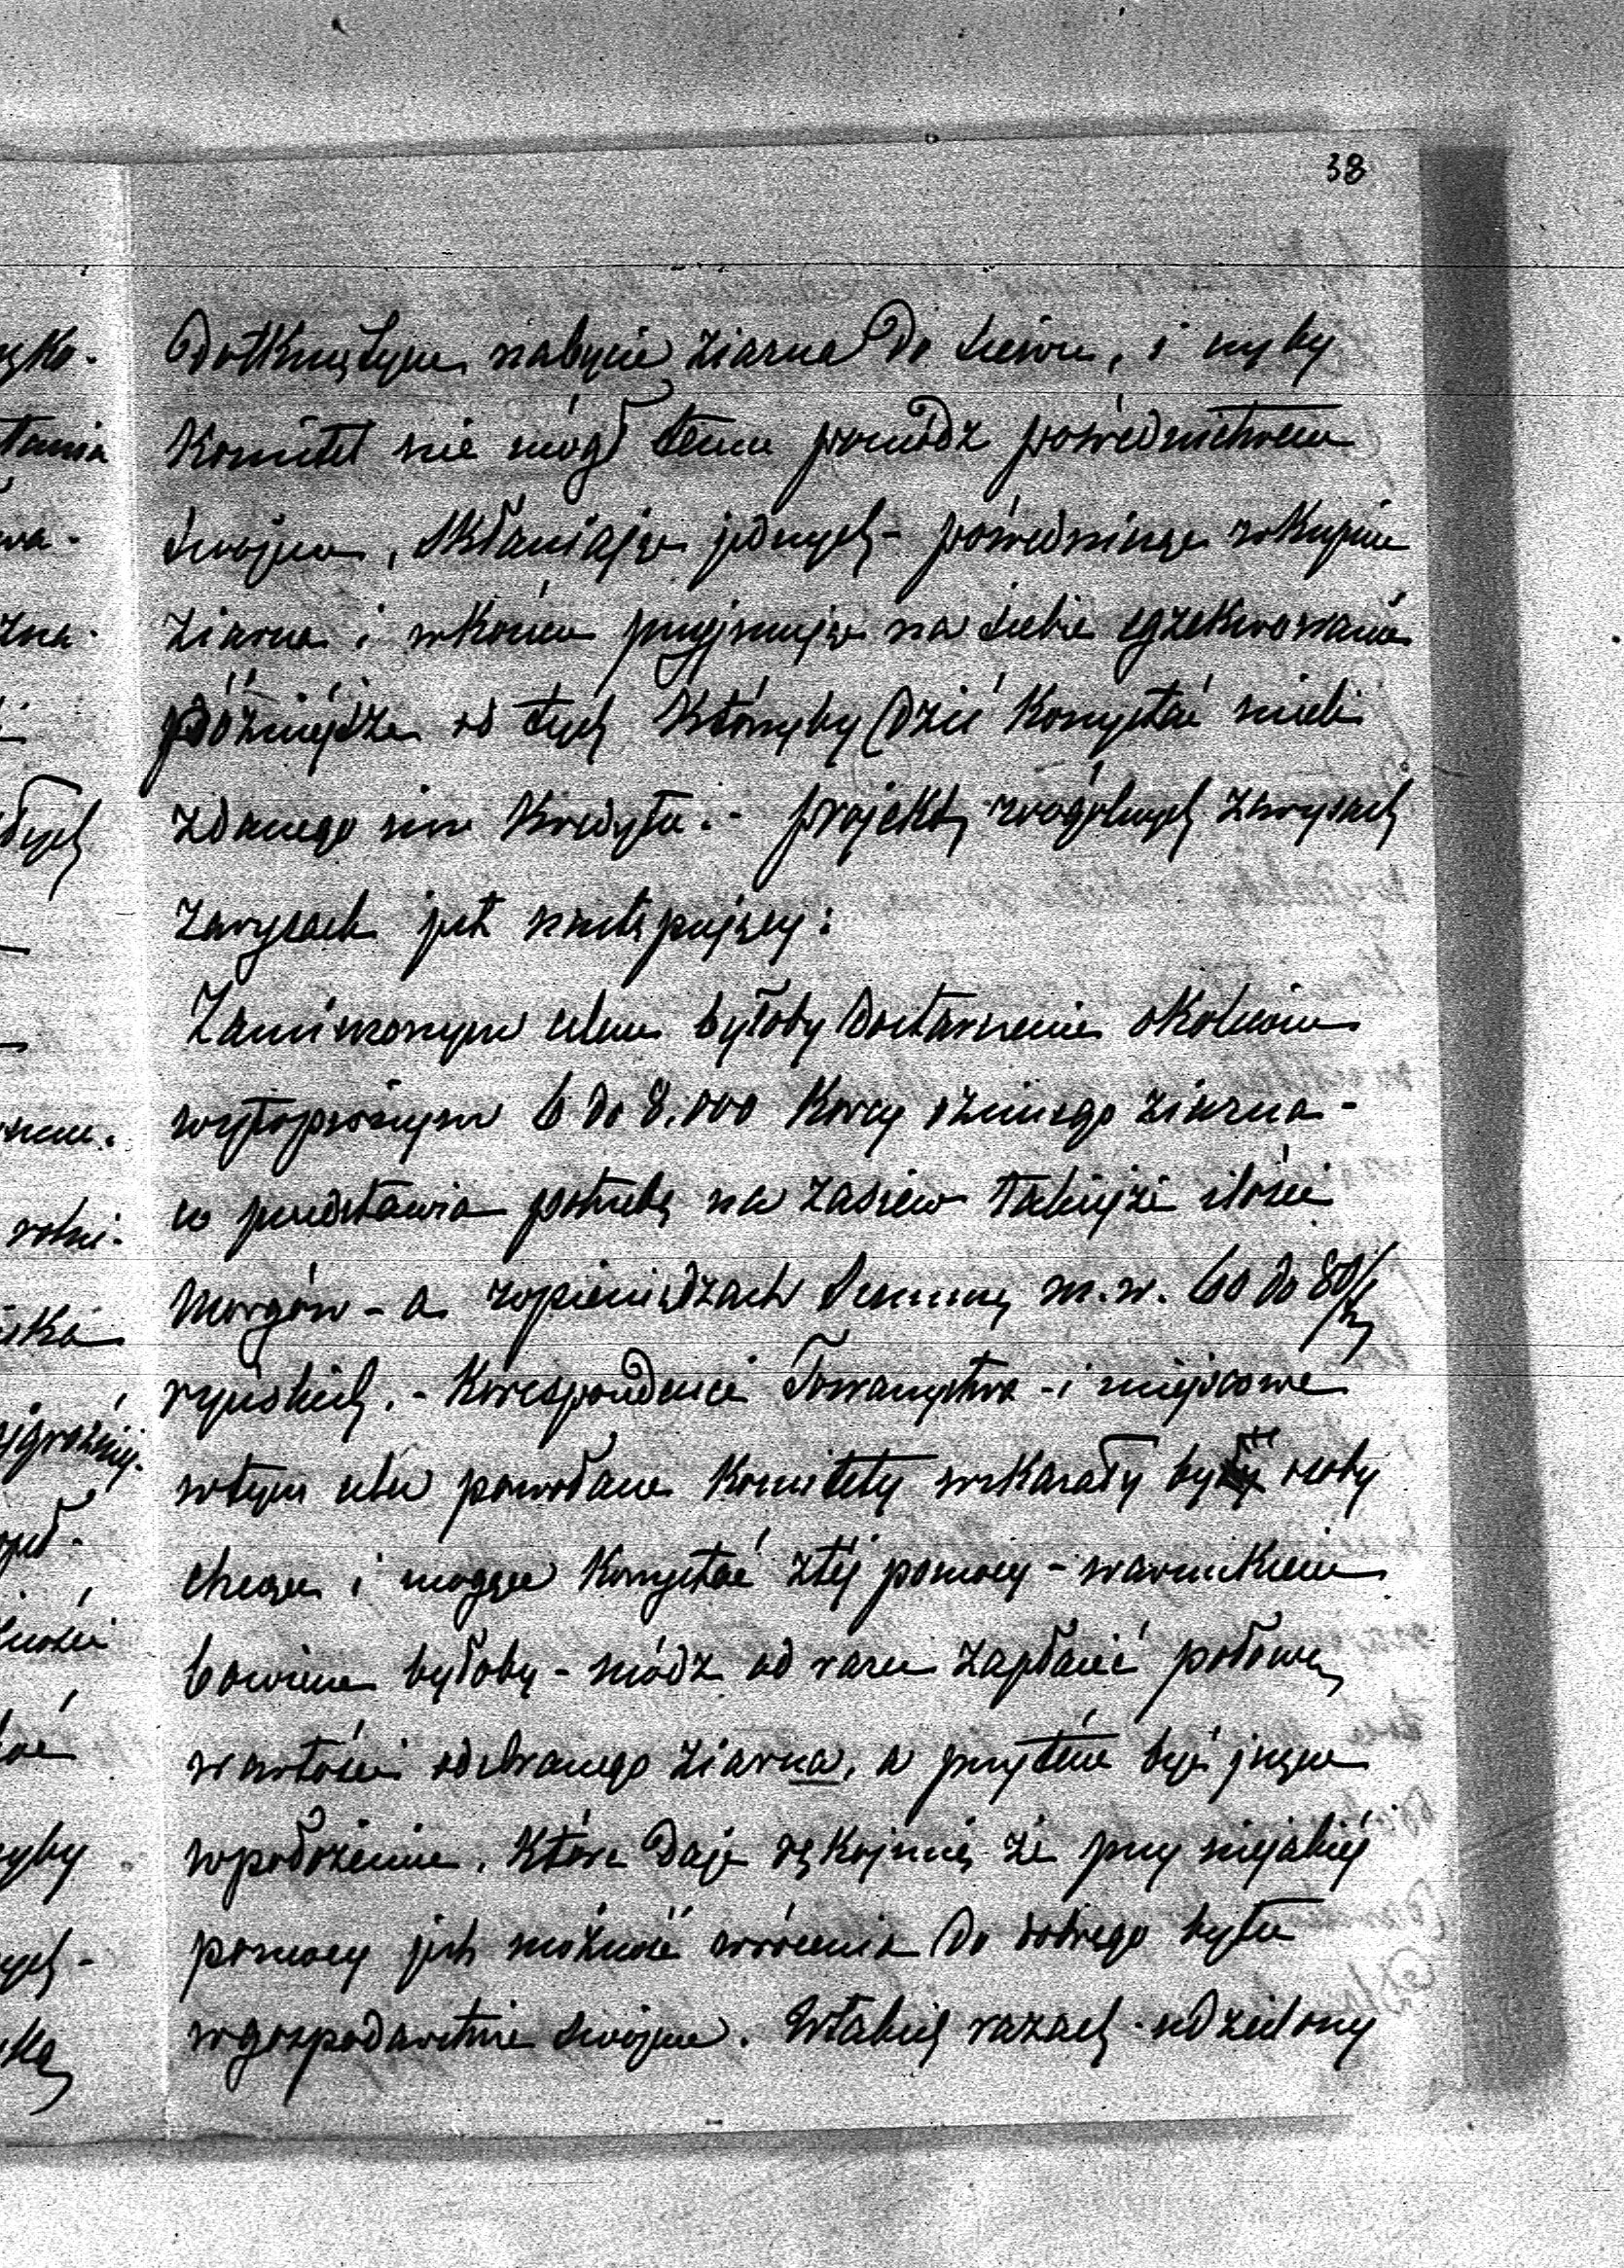 38
dotkniętym nabycie ziarna do siewu, i czyby
Komitet nie mógł temu pomódz pośrednictwem
swojem, skłaniając jednych - pośrednicząc w kupnie
ziarna i wkońcu przyjmując na siebie egzekwowanie
późniejsze od tych którzyby dziś korzystać mieli
zdanego im kredytu. - projekt wogólnych zarysach
zarysach jest następujący:
Zamierzonym celem byłoby dostarczenie okolicom
wytopionym 6 do 8.000 korcy ozimego ziarna -
co przedstawia potrzebę na zasiew takiejże ilości
morgów - a wpieniądzach summę m. w. 60 do 80/m
ryńskich. - Korespondenci Towarzystwa - i miejscowe
wtym celu powołane Komitety wskazały by osoby
chcące i mogące korzystać ztéj pomocy - warunkiem
bowiem byłoby - módz od razu zapłacić połowę
wartości odebranego ziarna, a przytém być jeszcze
wpołożeniu, które daje rękojmię że przy niejakiéj
pomocy jest możność wrócenia do dobrego bytu
wgospodarstwie swojem. Wtakich razach udzielony
yko.
tania
wa.
zna.
dych
rolni.
jgroźniej.
ności
zyby
ych -
kę